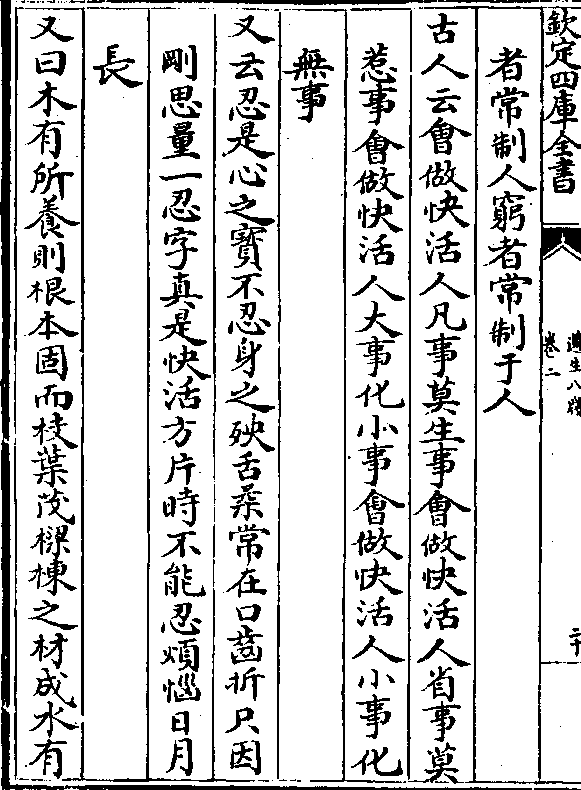 欽定四庫全書
卷二
二十
者常制人窮者常制于人
古人云會做快活人凡事莫生事會做快活人省事莫
惹事會做快活人大事化小事會做快活人小事化
無事
又云忍是心之寶不忍身之殃舌柔常在口齒折只因
剛思量一忍字真是快活方片時不能忍煩惱日月
長
又曰木有所養則根本固而枝葉茂樑棟之材成水有